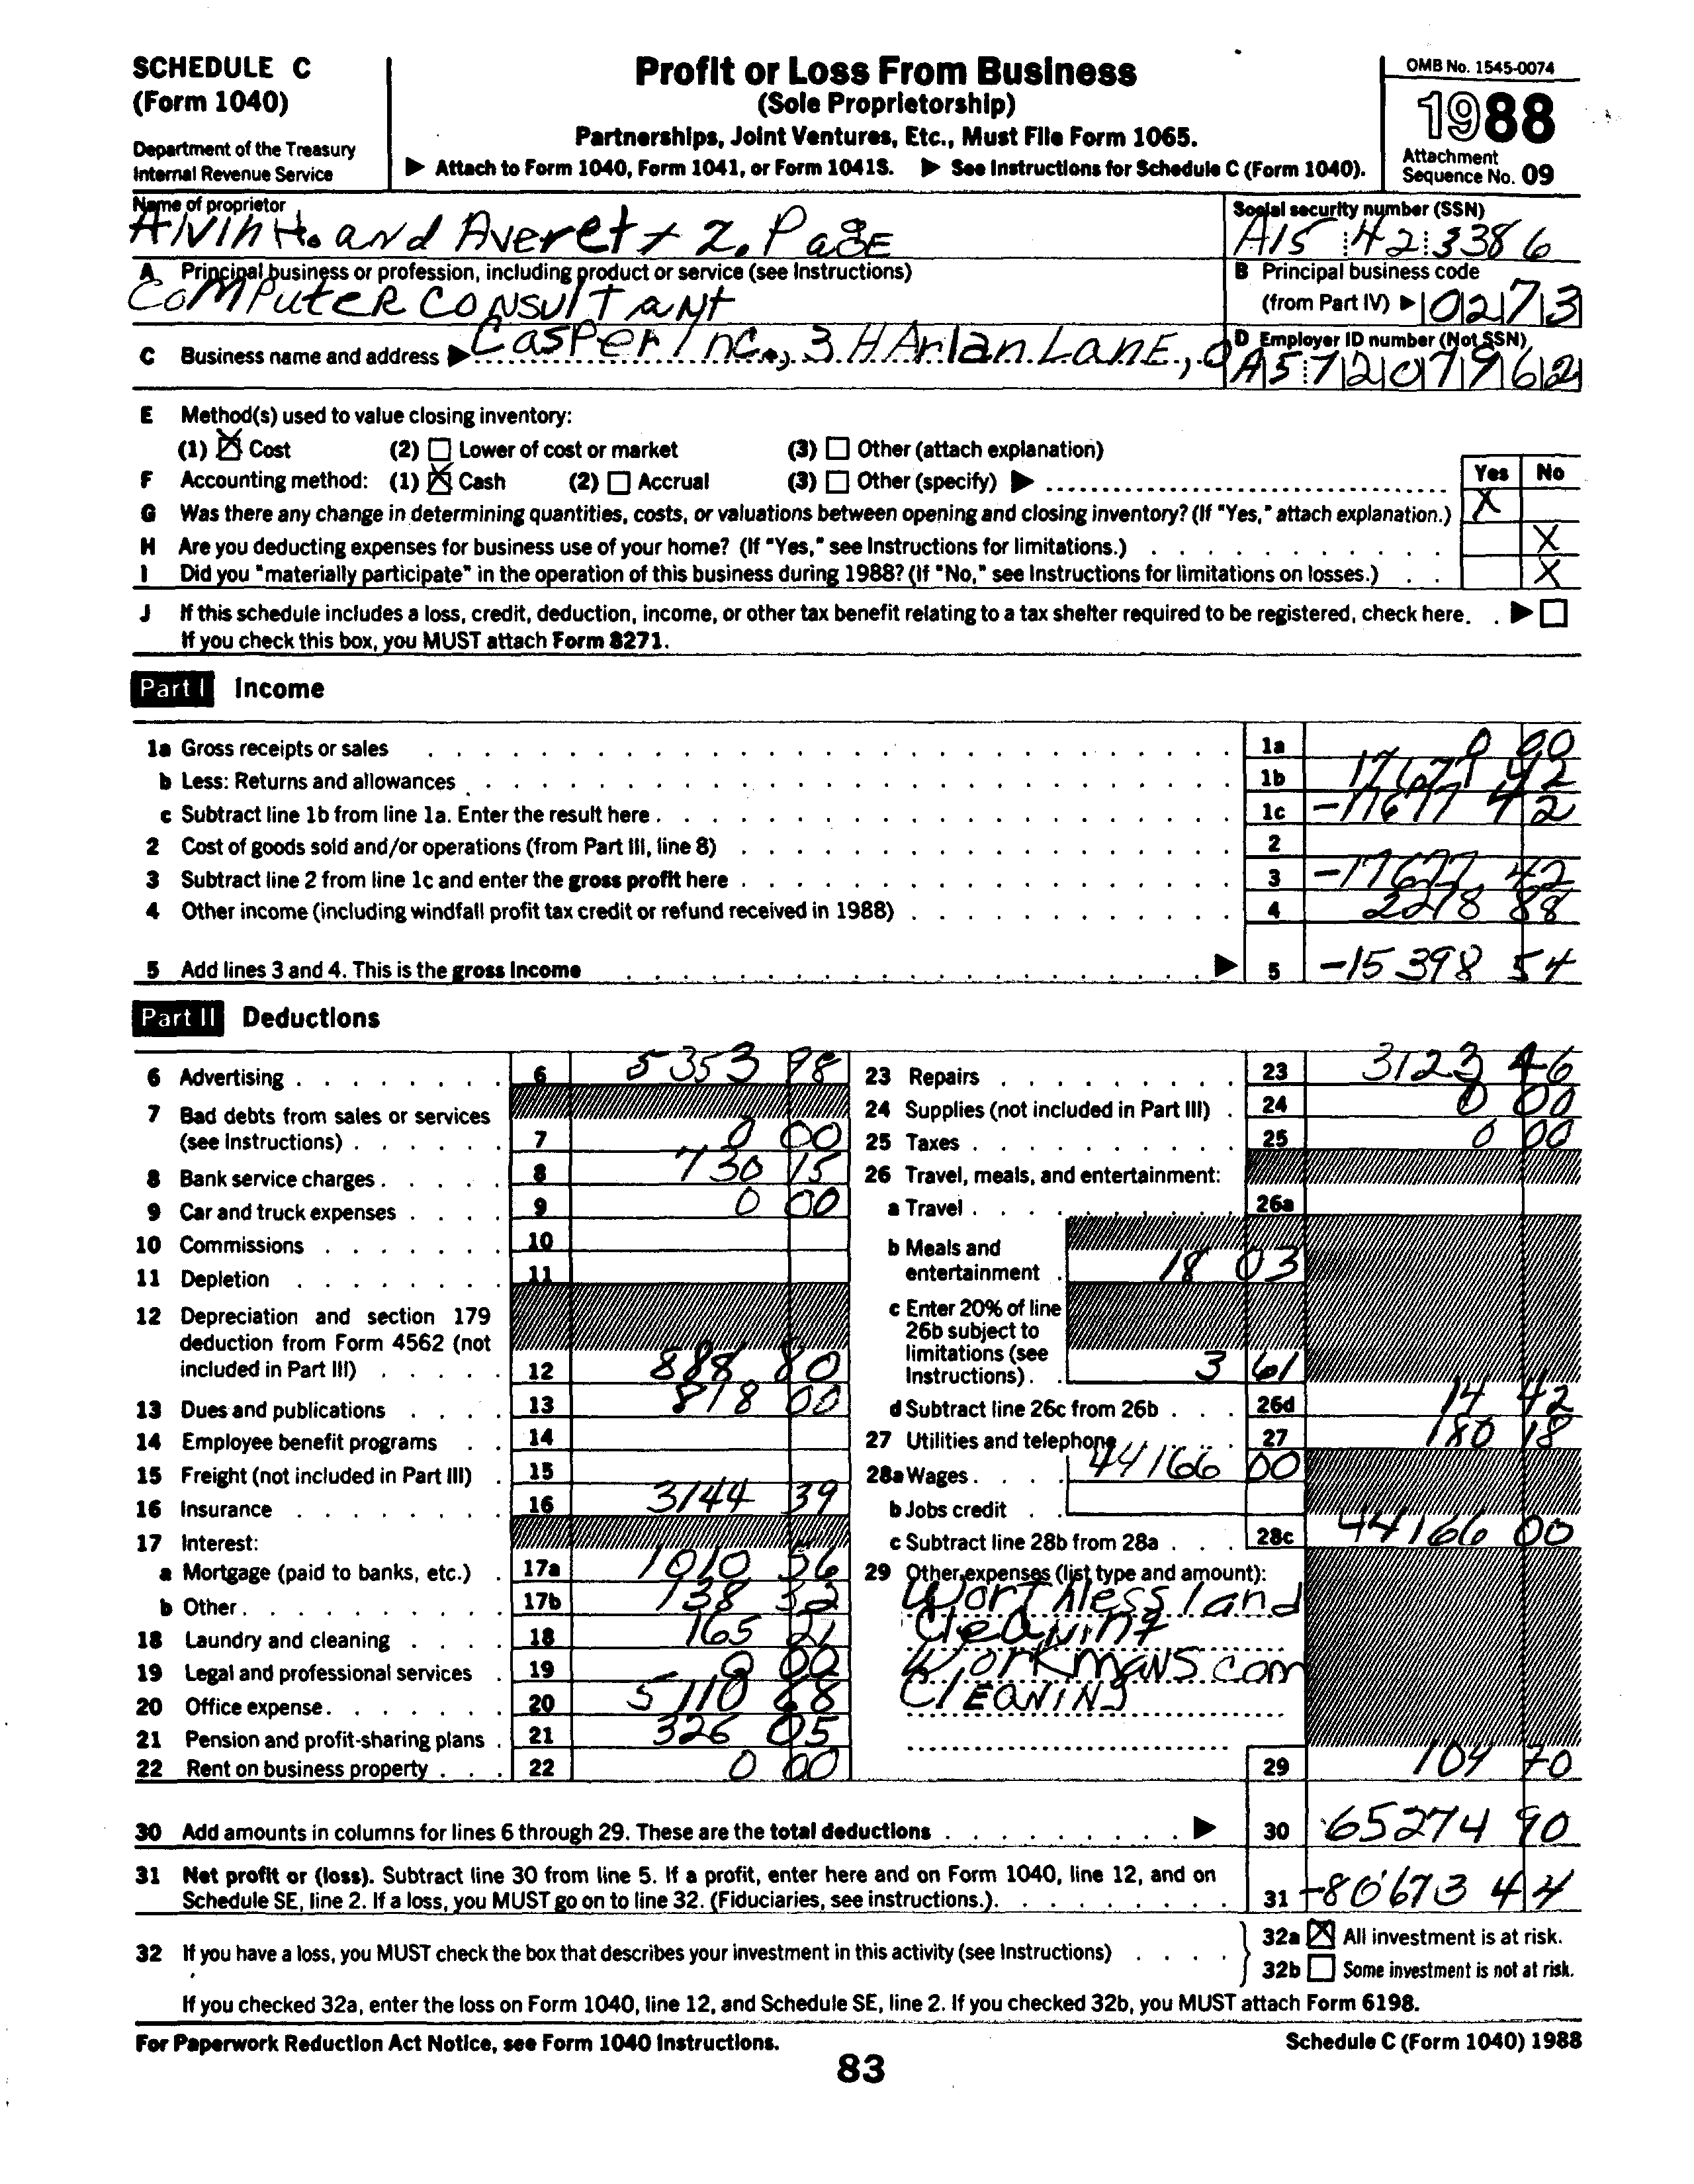 SCHEDULE C
(Form 1040)
Department of the Treasury
Internal Revenue Service
Profit or Loss From Business
(Sole Proprietorship)
Partnerships, Joint Ventures, Etc., Must File Form 1065.
▶ Attach to Form 1040, Form 1041, or Form 1041S. ▶ See Instructions for Schedule C (Form 1040).
OMB No. 1545-0074
1988
Attachment
Sequence No. 09
Name of proprietor
Alvin H. and Averett Z. Page
Social security number (SSN)
A15 42 3386
A Principal business or profession, including product or service (see Instructions)
Computer Consultant
B Principal business code
(from Part IV) ▶ 0273
C Business name and address ▶ Casper Inc., 3 Harlan Lane,
D Employer ID number (Not SSN)
A57207962
E Method(s) used to value closing inventory:
(1) ☒ Cost (2) ☐ Lower of cost or market (3) ☐ Other (attach explanation)
F Accounting method: (1) ☒ Cash (2) ☐ Accrual (3) ☐ Other (specify) ▶
Yes No
G Was there any change in determining quantities, costs, or valuations between opening and closing inventory? (If "Yes," attach explanation.) X
H Are you deducting expenses for business use of your home? (If "Yes," see Instructions for limitations.) X
I Did you "materially participate" in the operation of this business during 1988? (If "No," see Instructions for limitations on losses.) X
J If this schedule includes a loss, credit, deduction, income, or other tax benefit relating to a tax shelter required to be registered, check here. ▶ ☐
If you check this box, you MUST attach Form 8271.
Part I Income
1a Gross receipts or sales 1a 0 00
b Less: Returns and allowances 1b 17677 42
c Subtract line 1b from line 1a. Enter the result here 1c -17677 42
2 Cost of goods sold and/or operations (from Part III, line 8) 2
3 Subtract line 2 from line 1c and enter the gross profit here 3 -17677 42
4 Other income (including windfall profit tax credit or refund received in 1988) 4 2278 88
5 Add lines 3 and 4. This is the gross income ▶ 5 -15398 54
Part II Deductions
6 Advertising 6 5353 98
7 Bad debts from sales or services
(see Instructions) 7 0 00
8 Bank service charges 8 730 15
9 Car and truck expenses 9 0 00
10 Commissions 10
11 Depletion 11
12 Depreciation and section 179
deduction from Form 4562 (not
included in Part III) 12 888 80
13 Dues and publications 13 818 00
14 Employee benefit programs 14
15 Freight (not included in Part III) 15
16 Insurance 16 3144 39
17 Interest:
a Mortgage (paid to banks, etc.) 17a 1010 56
b Other 17b 138 32
18 Laundry and cleaning 18 165 21
19 Legal and professional services 19 0 00
20 Office expense 20 5110 68
21 Pension and profit-sharing plans 21 326 05
22 Rent on business property 22 0 00
23 Repairs 23 3123 46
24 Supplies (not included in Part III) 24 0 00
25 Taxes 25 0 00
26 Travel, meals, and entertainment:
a Travel 26a
b Meals and
entertainment 18 03
c Enter 20% of line
26b subject to
limitations (see
Instructions) 3 61
d Subtract line 26c from 26b 26d 14 42
27 Utilities and telephone 27 180 18
28a Wages 44166 00
b Jobs credit
c Subtract line 28b from 28a 28c 44166 00
29 Other expenses (list type and amount):
Worthless land
Cleaning
Workmans com
Cleaning
29 104 70
30 Add amounts in columns for lines 6 through 29. These are the total deductions ▶ 30 65274 90
31 Net profit or (loss). Subtract line 30 from line 5. If a profit, enter here and on Form 1040, line 12, and on
Schedule SE, line 2. If a loss, you MUST go on to line 32. (Fiduciaries, see instructions.) 31 -80673 44
32 If you have a loss, you MUST check the box that describes your investment in this activity (see Instructions)
32a ☒ All investment is at risk.
32b ☐ Some investment is not at risk.
If you checked 32a, enter the loss on Form 1040, line 12, and Schedule SE, line 2. If you checked 32b, you MUST attach Form 6198.
For Paperwork Reduction Act Notice, see Form 1040 Instructions.
Schedule C (Form 1040) 1988
83